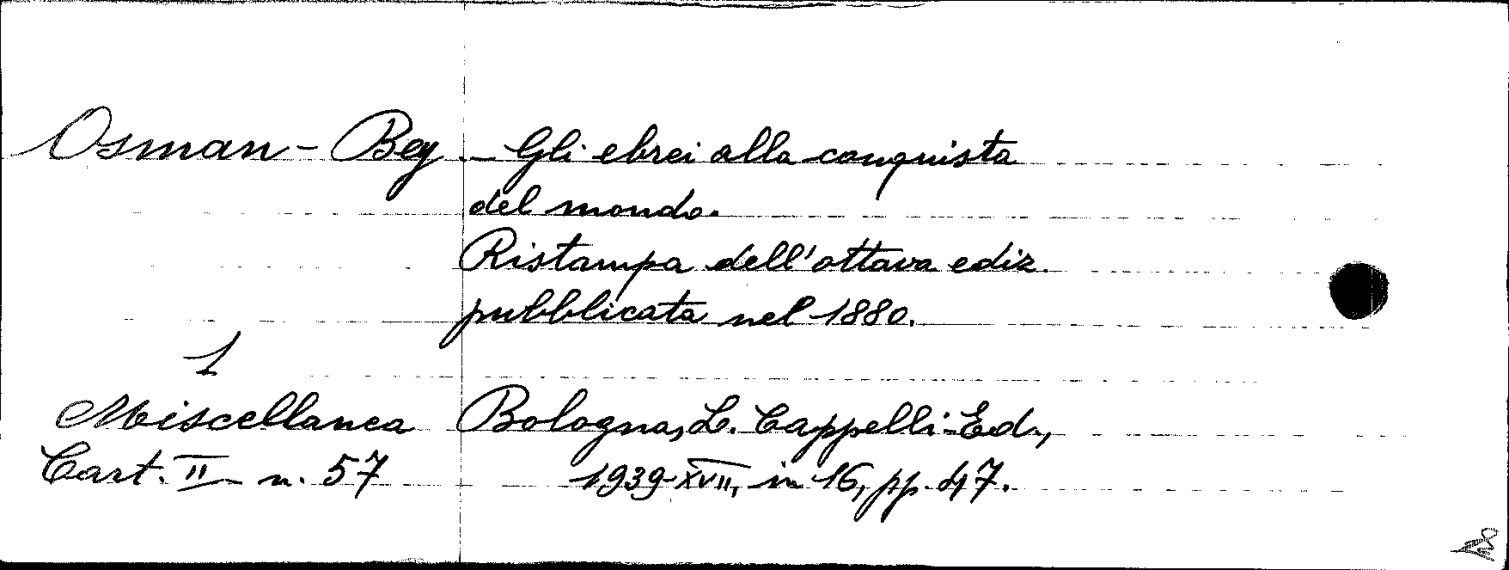 Osman-Bey - Gli ebrei alla conquista
del mondo.
Ristampa dell'ottava ediz.
pubblicata nel 1880.
1
Miscellanea Bologna, L. Cappelli-Ed.,
Cart. II n. 57 1939-XVII, in 16, pp. 47.